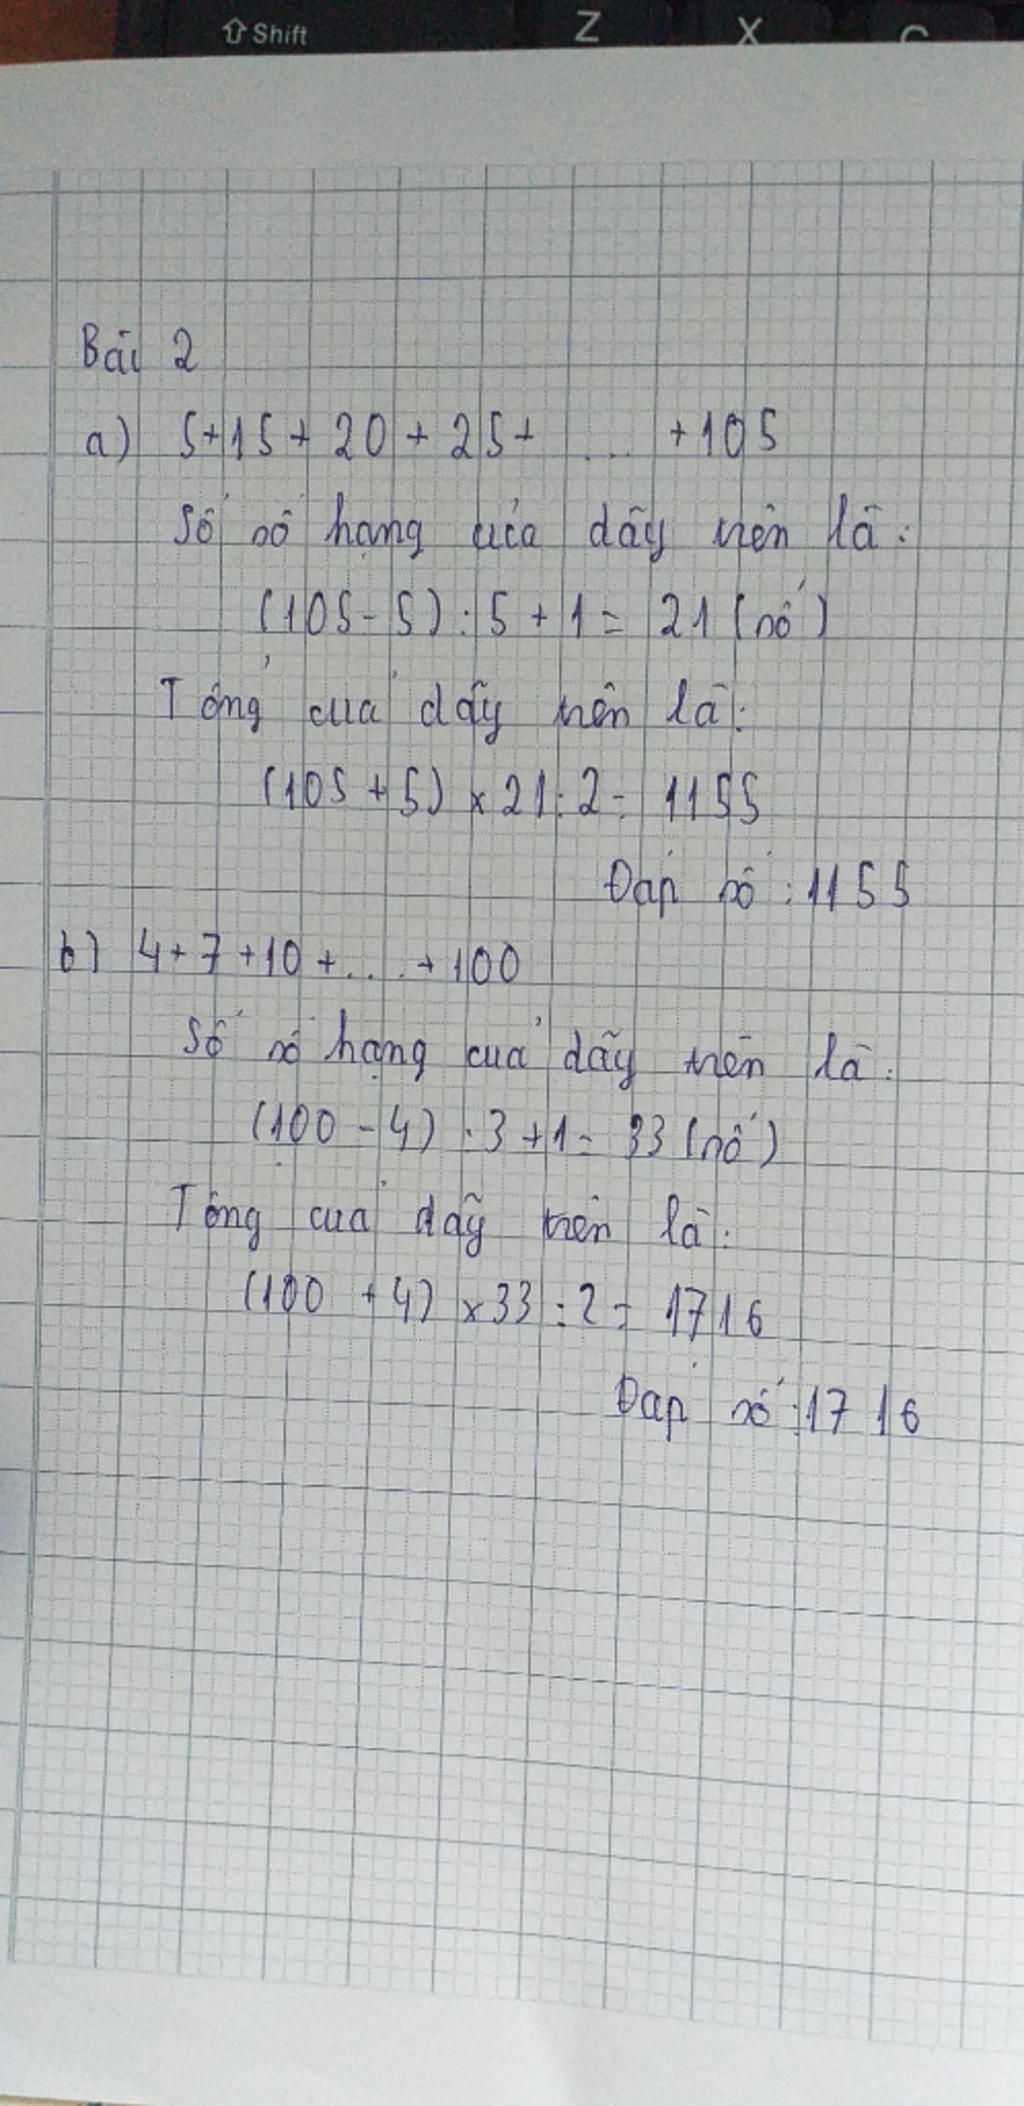 ⇧ Shift Z X C
Bài 2
a) 5+15+20+25+....+105
Số số hạng của dãy trên là:
(105-5):5+1=21(số)
Tổng của dãy trên là:
(105+5)x21:2=1155
Đáp số:1155
b) 4+7+10+....+100
Số số hạng của dãy trên là:
(100-4):3+1=33(số)
Tổng của dãy trên là:
(100+4)x33:2=1716
Đáp số:1716